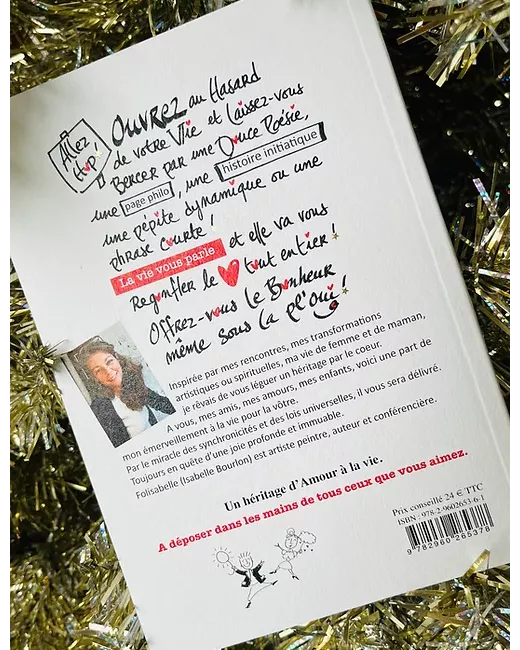 Allez
Hop!
OUVREZ au Hasard
de votre Vie et Laissez-vous
Bercer par une Douce Poésie,
une page philo, une histoire initiatique
une pépite dynamique ou une
phrase courte !
La vie vous parle et elle va vous
Regonfler le tout entier !
Offrez-vous le Bonheur
même sous la pl'oui !
Inspirée par mes rencontres, mes transformations
artistiques ou spirituelles, ma vie de femme et de maman,
je rêvais de vous léguer un héritage par le coeur.
A vous, mes amis, mes amours, mes enfants, voici une part de
mon émerveillement à la vie pour la vôtre.
Par le miracle des synchronicités et des lois universelles, il vous sera délivré.
Toujours en quête d'une joie profonde et immuable.
Folisabelle (Isabelle Bourlon) est artiste peintre, auteur et conférencière.
Un héritage d'Amour à la vie.
A déposer dans les mains de tous ceux que vous aimez.
Prix conseillé 24 € TTC
ISBN : 978-2-9602653-6-1
9782960265378